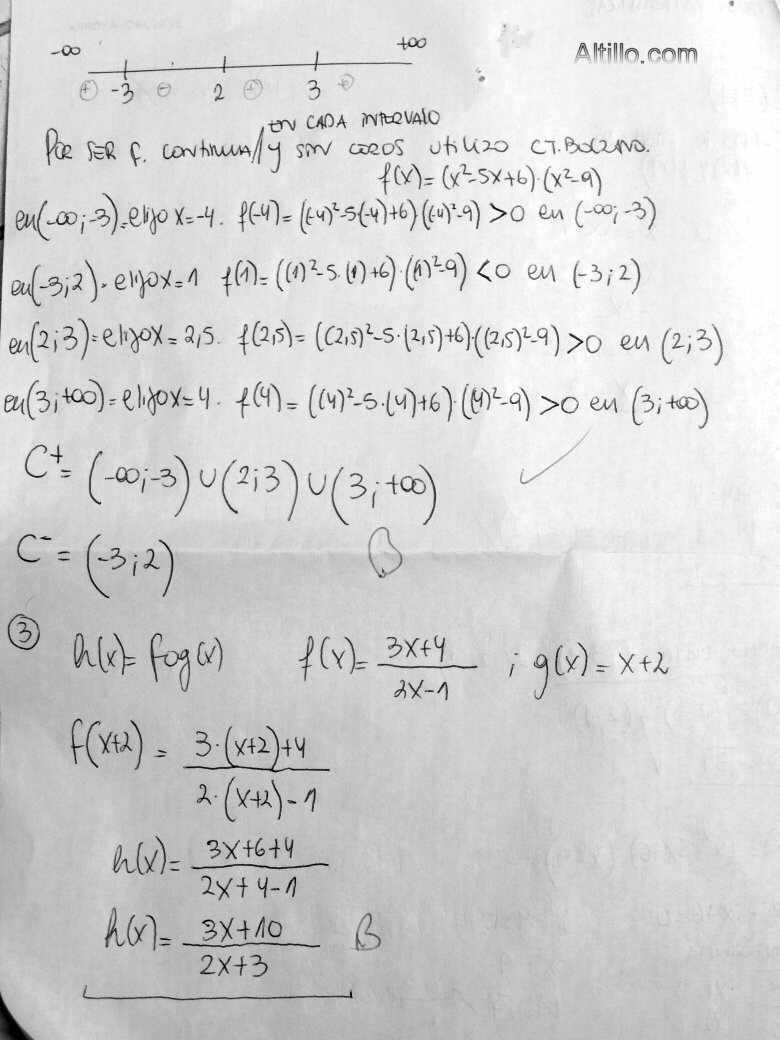 -∞ +∞
Altillo.com
⊕ -3 ⊖ 2 ⊕ 3 ⊕
EN CADA INTERVALO
POR SER f. CONTINUA // y SIN CEROS UTILIZO C.T.BOLZANO.
f(x)=(x²-5x+6)·(x²-9)
en(-∞;-3)=elijo x=-4. f(-4)=((-4)²-5(-4)+6)·((-4)²-9)>0 en (-∞;-3)
en(-3;2)=elijo x=1 f(1)=((1)²-5.(1)+6)·((1)²-9)<0 en (-3;2)
en(2;3)=elijo x=2,5. f(2,5)=((2,5)²-5·(2,5)+6)·((2,5)²-9)>0 en (2;3)
en(3;+∞)=elijo x=4. f(4)=((4)²-5·(4)+6)·((4)²-9)>0 en (3;+∞)
C⁺= (-∞;-3)∪(2;3)∪(3;+∞)
C⁻= (-3;2) B
③ h(x)= fog(x) f(x)= 3x+4 / 2x-1 ; g(x)= x+2
f(x+2) = 3·(x+2)+4 / 2·(x+2)-1
h(x)= 3x+6+4 / 2x+4-1
h(x)= 3x+10 / 2x+3 B